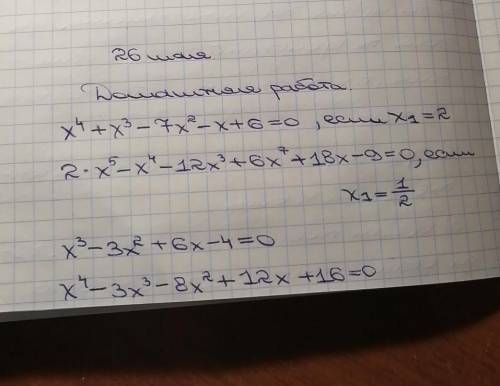 26 мая
Домашняя работа.
x⁴+x³-7x²-x+6=0, если x₁=2
2·x⁵-x⁴-12x³+6x⁷+18x-9=0, если
x₁=1/2
x³-3x²+6x-4=0
x⁴-3x³-8x²+12x+16=0